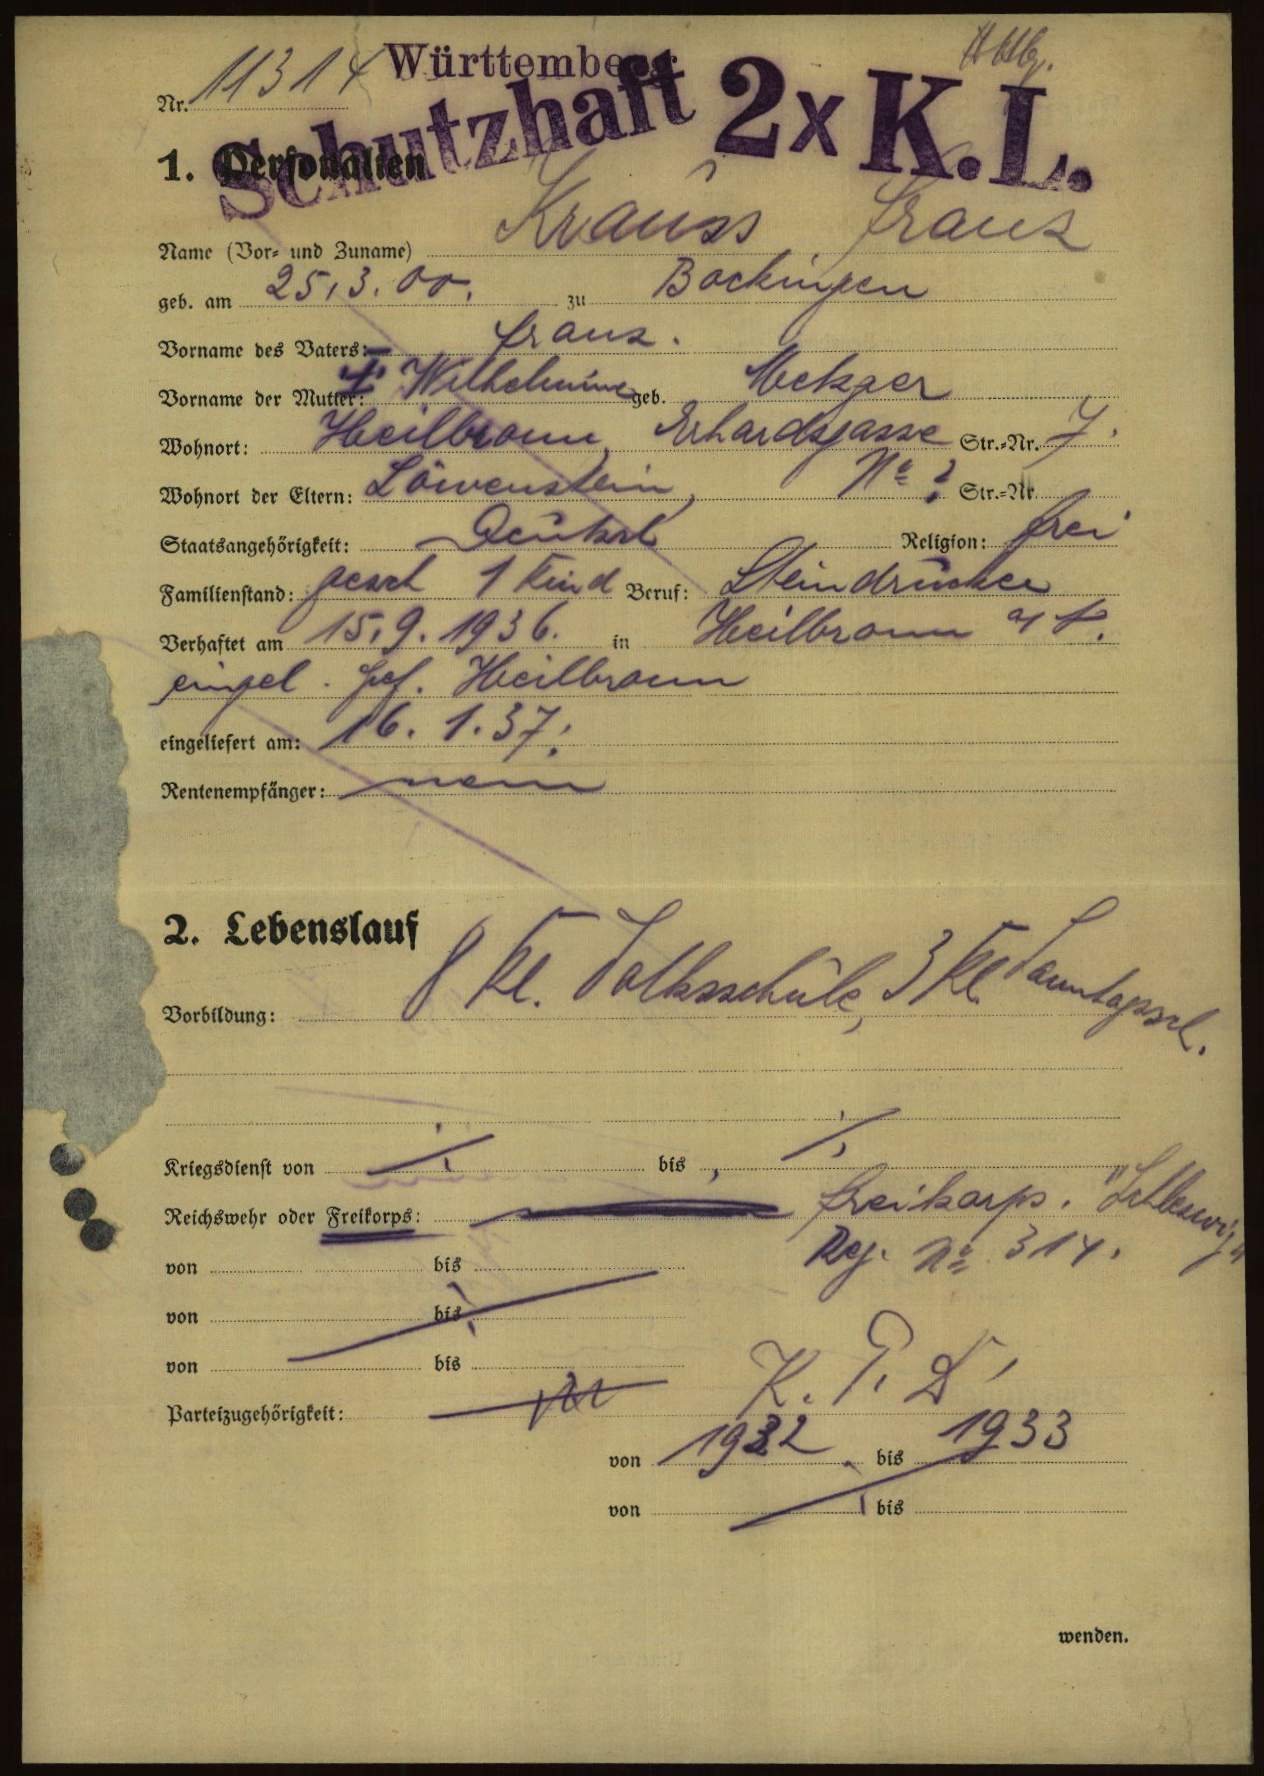 Württemberg
Nr. 11314
Schutzhaft 2 x K.L.
1. Personalien
Name (Vor- und Zuname) Krauss Franz
geb. am 25.3.00. zu Böckingen
Vorname des Vaters: Franz.
Vorname der Mutter: Wilhelmine geb. Metzger
Wohnort: Heilbronn, Erhardsgasse Str.-Nr. 7.
Wohnort der Eltern: Löwenstein, No ? Str.-Nr.
Staatsangehörigkeit: Deutsch Religion: frei
Familienstand: gesch 1 Kind Beruf: Steindrucker
Verhaftet am 15.9.1936. in Heilbronn
Heilbronn
eingeliefert am: 16.1.37.
Rentenempfänger: nein
2. Lebenslauf
Vorbildung: 8 Kl. Volksschule, 3 Kl. Sonntagssch.
Kriegsdienst von ./. bis ./.
Reichswehr oder Freikorps: Freikorps. "Schleswig"
Reg. No 314.
von bis
von bis
von bis
Parteizugehörigkeit: K.P.D.
von 1932 bis 1933
von bis
wenden.